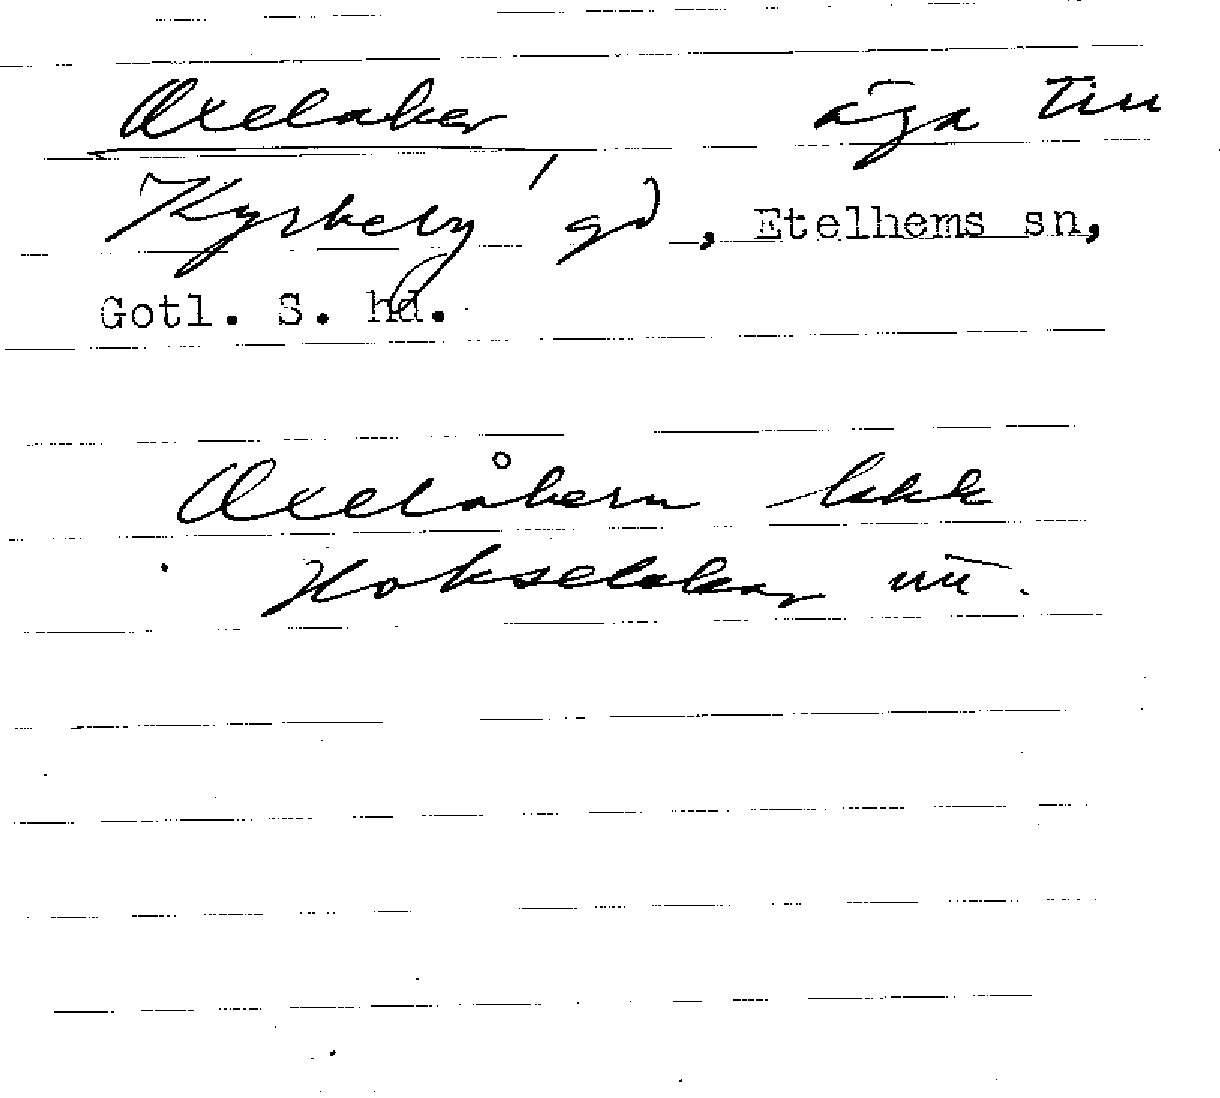 Oxelaker, äga till
Kyrkeby gd, Etelhems sn,
Gotl. S. hd.
Oxelåkern lkkk
Hokselakar uu.